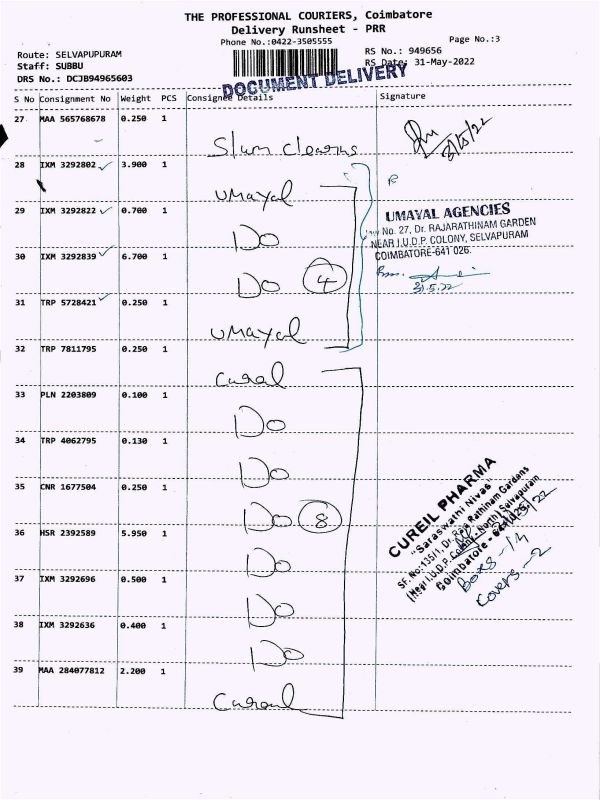 THE PROFESSIONAL COURIERS, Coimbatore
Delivery Runsheet - PRR
Phone No.:0422-3505555
Page No.:3
Route: SELVAPUPURAM
RS No.: 949656
Staff: SUBBU
RS Date: 31-May-2022
DRS No.: DCJB94965603
DOCUMENT DELIVERY
S No Consignment No Weight PCS Consignee Details Signature
27 MAA 565768678 0.250 1
31/5/22
28 IXM 3292802 3.900 1
UMayal
29 IXM 3292822 0.700 1
Do
UMAYAL AGENCIES
No. 27, Dr. RAJARATHINAM GARDEN
NEAR I.U.D.P. COLONY, SELVAPURAM
COIMBATORE-641 026.
30 IXM 3292839 6.700 1
Do 4
31.5.22
31 TRP 5728421 0.250 1
UMayal
32 TRP 7811795 0.250 1
Cural
33 PLN 2203809 0.100 1
Do
34 TRP 4062795 0.130 1
Do
35 CNR 1677504 0.250 1
Do 8
CUREIL PHARMA
"Saraswathi Nivas"
SF. No:135/1, Dr. Raja Rathinam Gardens
(Near I.U.D.P. Colony-North) Selvapuram
Coimbatore - 641
Boxs-14
Covers-2
36 HSR 2392589 5.950 1
Do
37 IXM 3292696 0.500 1
Do
38 IXM 3292636 0.400 1
Do
39 MAA 284077812 2.200 1